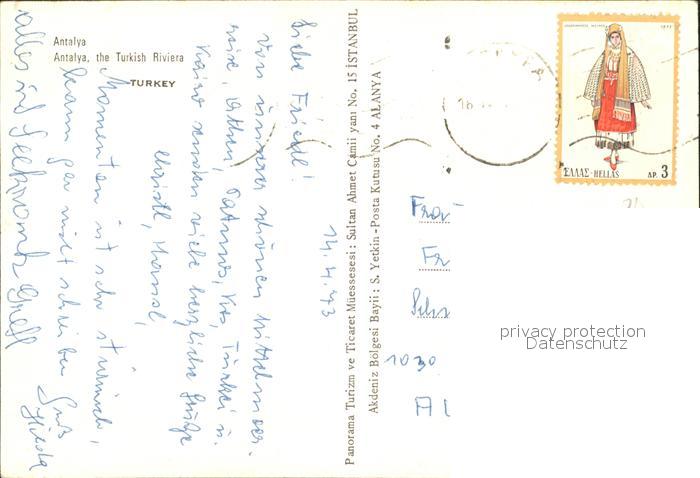 Antalya
Antalya, the Turkish Riviera
TURKEY
14.4.73
Liebe Friedl!
Von unserer schönen Mittelmeer-
reise, Athen, Patmos, Kos, Türkei u.
Kairo senden viele herzliche Grüße
Christl, Hansl,
Momentan ist sehr stürmisch,
kann gar nicht schreiben Gruß
alles ist Hilda
Panorama Turizm ve Ticaret Müessesesi: Sultan Ahmet Camii yani No. 15 İSTANBUL
Akdeniz Bölgesi Bayii: S. Yetkin-Posta Kutusu No. 4 ALANYA
1973
ΕΛΛΑΣ-HELLAS ΔΡ. 3
Frau
Fr
1030
privacy protection
Datenschutz